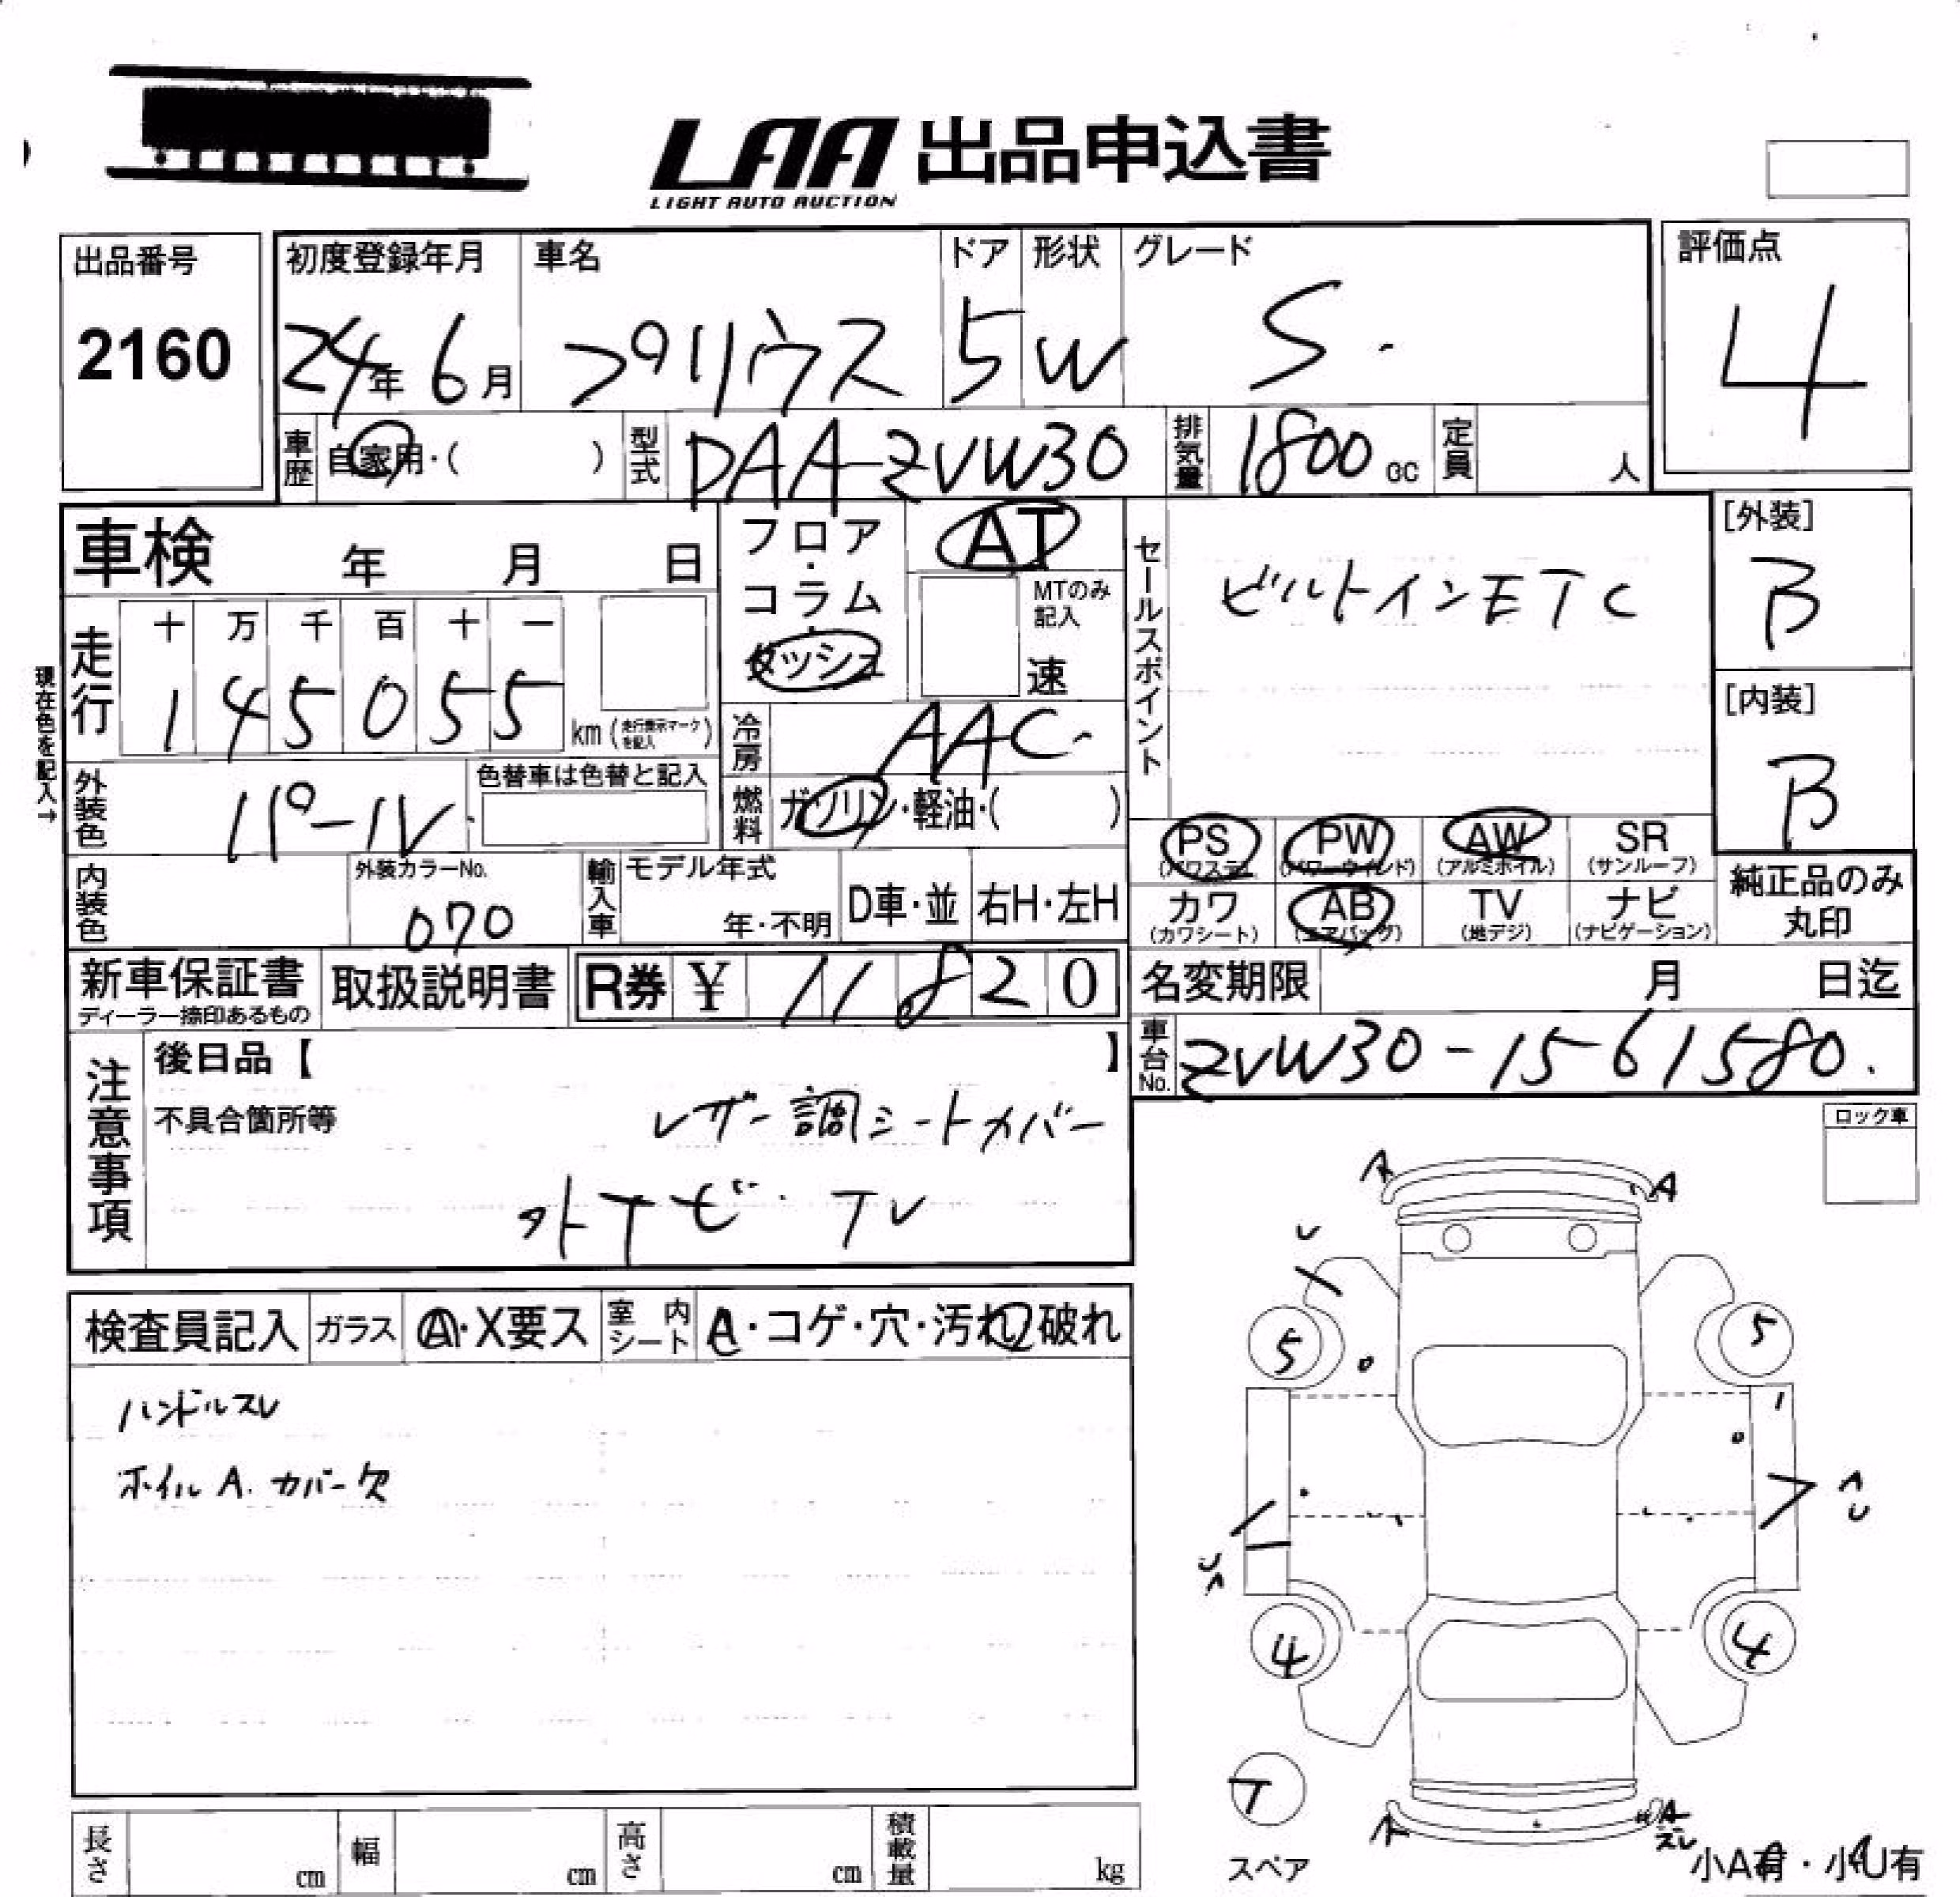 LAA 出品申込書
LIGHT AUTO AUCTION
出品番号
2160
初度登録年月
24年 6月
車名
プリウス
ドア
5
形状
W
グレード
S.
評価点
4
車歴 自家用・( )
型式 DAA-ZVW30
排気量 1800 cc
定員 人
車検 年 月 日
フロア・コラム・ダッシュ
AT
MTのみ記入
速
セールスポイント
ビルトインETC
[外装]
B
[内装]
B
現在色を記入→
走行
十 万 千 百 十 一
1 4 5 0 5 5
km (走行表示マークを記入)
冷房 AAC
燃料 ガソリン・軽油・( )
外装色 パール
色替車は色替と記入
内装色
外装カラーNo.
070
輸入車
モデル年式
年・不明
D車・並
右H・左H
PS (パワステ) PW (パワーウインド) AW (アルミホイル) SR (サンルーフ)
カワ (カワシート) AB (エアバッグ) TV (地デジ) ナビ (ナビゲーション)
純正品のみ丸印
新車保証書
ディーラー捺印あるもの
取扱説明書
R券 ¥ 11820
名変期限 月 日迄
車台No. ZVW30-1561580.
注意事項
後日品【 】
不具合箇所等
レザー調シートカバー
外ナビ・TV
ロック車
検査員記入
ガラス A・X要ス
室内シート A・コゲ・穴・汚れ・破れ
ハンドルスレ
ホイルA. カバー欠
A A
U
5 5
4 4
T
スペア
A A
スレ
小A有・小U有
長さ cm
幅 cm
高さ cm
積載量 kg